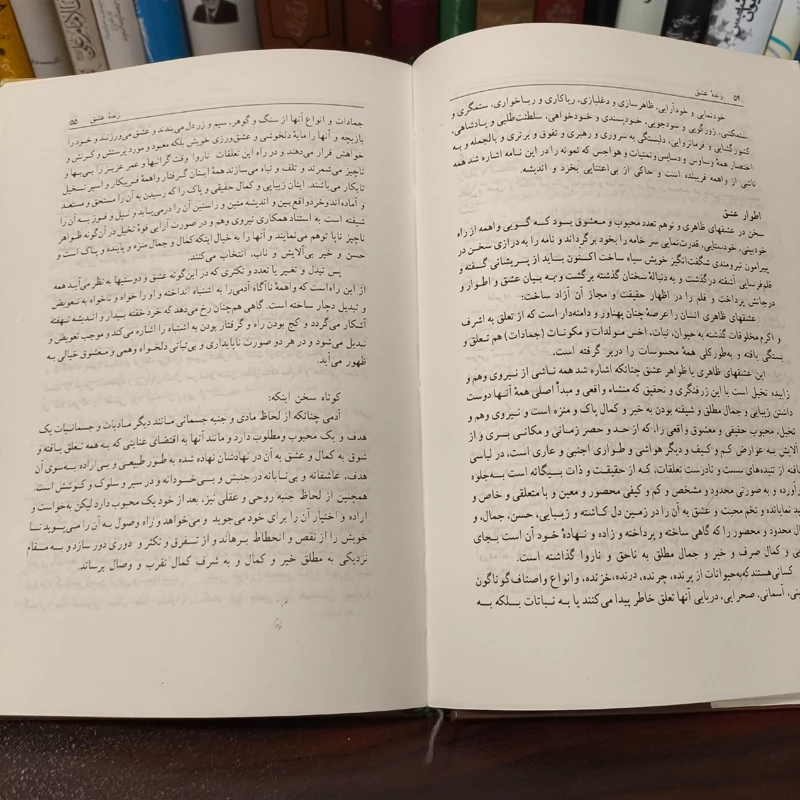 ۵۴ زندهٔ عشق
خودنمایی و خودآرایی، ظاهرسازی و دغلبازی، ریاکاری و رباخواری، ستمگری و
ستمکشی، زورگویی و سودجویی، خودپسندی و خودخواهی، سلطنت‌طلبی و پادشاهی،
کشورگشایی و فرمانروایی، دلبستگی به سروری و رهبری و تفوق و برتری و بالجمله و به
اختصار همهٔ وساوس و دسایس و تمنیات و هواجس که نمونه را در این نامه اشاره شد همه
ناشی از واهمه فریبنده است و حاکی از بی‌اعتنایی بخرد و اندیشه.
اطوار عشق
سخن در عشقهای ظاهری و توهم تعدد محبوب و معشوق بود کـه گـویی واهمه از راه
خودبینی، خودستایی، قدرت‌نمایی سر خامه را بخود برگرداند و نامه را به درازی سخن در
پیرامون نیرومندی شگفت‌انگیز خویش سیاه ساخت اکـنون بـاید از پـریشانی گـفته و
قلم‌فرسایی آشفته درگذشت و به دنبالهٔ سخنان گذشته برگشت و بـه بیان عشق و اطوار و
درجاتش پرداخت و قلم را در اظهار حقیقت و مجاز آن آزاد ساخت:
عشقهای ظاهری انسان را عرصهٔ چنان پهناور و دامنه‌دار است که از تعلق به اشرف
و اکرم مخلوقات گذشته به حیوان، نبات، اخس مـولدات و مکونات (جمادات) هم تـعلق و
بستگی یافته و به‌طورکلی همهٔ محسوسات را دربر گرفته است.
این عشقهای ظاهری یا ظواهر عشق چنانکه اشاره شد همه ناشی از نیروی وهم و
زاییده تخیل است با این ژرفنگری و تحقیق که منشاء واقعی و مبدأ اصلی همهٔ آنها دوست
داشتن زیبایی و جمال مطلق و شیفته بودن به خیر و کمال پاک و منزه است و نیروی وهم و
تخیل، محبوب حقیقی و معشوق واقعی را، که از حـد و حصر زمانی و مکـانی بـری و از
آلایش به عوارض کم و کیف و دیگر هواشی و طواری اجنبی و عاری است، در لباسی
بافته از تنیده‌های سست و نادرست تعلقات، کـه از حـقیقت و ذات بـیگانه است بـه‌جلوه
درآورده و به صورتی محدود و مشخص و کم و کیفی محصور و معین و با متعلقی و خاص و
نمایانده و تخم محبت و عشق به آن را در زمین دل کـاشته و زیـبایی، حسن، جمال، و
محدود و محصور را که گاهی ساخته و پرداخته و زاده و نـهادهٔ خـود آن است بـجای
و کمال صرف و خیر و جمال مطلق به ناحق و ناروا گذاشته است.
کسانی هستند که به حیوانات از پرنده، چرنده، درنده، خزنده، و انواع و اصناف گوناگون
آسمانی، صحرایی، دریایی آنها تعلق خاطر پیدا می‌کنند یا به نباتات بـلکه بـه
زندهٔ عشق ۵۵
جمادات و انواع آنها از سنگ و گوهر، سیم و زر دل می‌بندند و عشق می‌ورزنـد و خـود را
بازیچه و آنها را مایهٔ دلخوشی و عشق‌ورزی خویش بلکه معبود و مورد پرستش و کـرنش و
خواهش قرار می‌دهند و در راه این تعلقات ناروا وقت گرانبها و عمر عزیـز را بـی‌بها و
ناچیز می‌شمرند و تلف و تباه می‌سازند همهٔ اینان گرفتار واهمهٔ فـریبکار و اسیر تـخیل
تابکار می‌باشند. اینان زیبایی و کمال حقیقی و پـاک را که رسیدن به آن را مستحق و مستعد
و آماده‌اند و خرد واقع بین و اندیشه متین و راستین آن را درمی‌یابد و نـیل و فـوز بـه آن را
شیفته است به استناد همکاری نیروی وهم و در صورت آرایی قوهٔ تخیل در آن‌گونه ظـواهر
ناچیز ناپا توهم می‌نمایند و آنها را به خیال اینکه کمال و جمال منزه و پاینده و پـاک است و
حسن و خیر بی‌آلایش و ناب، انتخاب می‌کنند.
پس تبدل و تغییر یا تعدد و تکثری که در این‌گونه عشق و دوستیها به نظر می‌آید همه
از این راه است که واهمهٔ ناآگاه آدمی را به اشتباه انداخته و او را خواه و ناخواه به تـعویض
و تبدیل دچار ساخته است. گاهی هم‌چنان رخ می‌دهد که خرد خفته بیدار و اندیشه نهفته
آشکار می‌گردد و کج بودن راه و گرفتار بودن به اشتباه را اشاره می‌کند و موجب تعویض و
تبدیل می‌شود و در هر دو صورت ناپایداری و بی‌ثباتی دلخواه وهمی و معشوق خیالی به
ظهور می‌آید.
کوتاه سخن اینکه:
آدمی چنانکه از لحاظ مادی و جنبه جسمانی مـانند دیگر مـادیات و جسمانیات یک
هدف و یک محبوب و مطلوب دارد و مانند آنها به اقتضای عنایتی که به همه تعلق یافته و
شوق به کمال و عشق به آن در نهادشان نهاده شده به طور طبیعی و بـی‌اراده بـه‌سوی آن
هدف، عاشقانه و بی‌تابانه در جنبش و بـی‌خودانه و در سیر و سلوک و کـوشش است.
همچنین از لحاظ جنبه روحی و عقلی نیز، بعد از خود یک محبوب دارد لیکن به‌خواست و
اراده و اختیار آن را برای خود می‌جوید و می‌خواهد و راه وصول به آن را مـی‌پوید تـا
خویش را از نقص و انحطاط برهاند و از تـفرق و تکثر و دوری دور سازد و بـه مـقام
نزدیکی به مطلق خیر و کمال و به شرف کمال تقرب و وصال برساند.